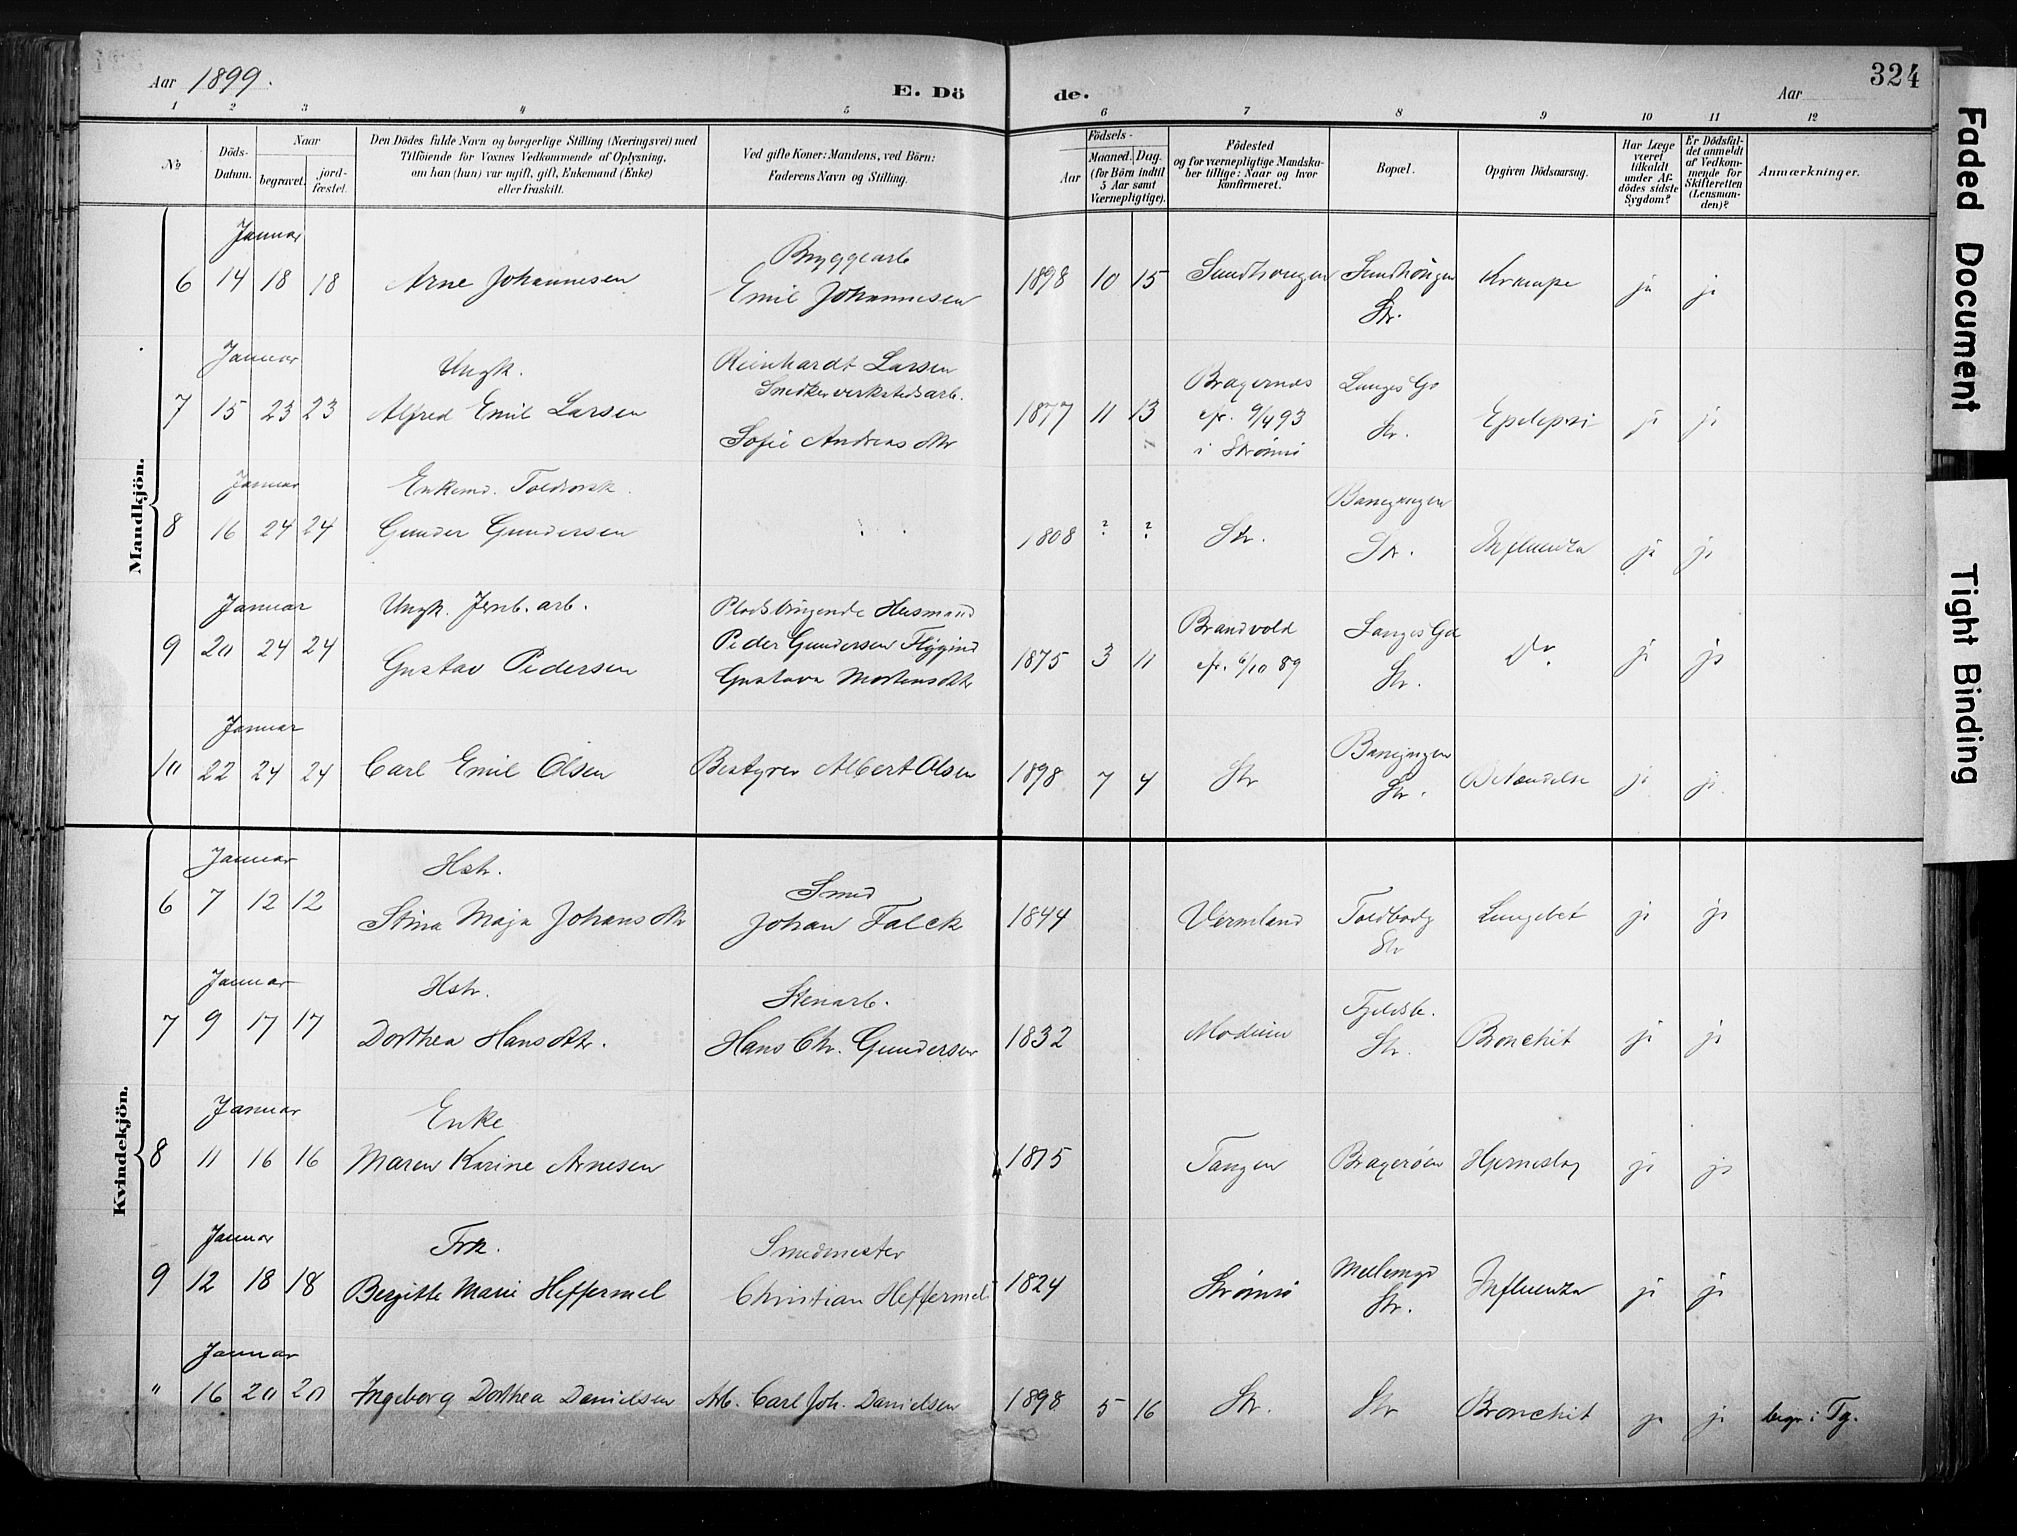 Aar 1899.
E. Dö
de.
Aar
324
1 2 3 4 5 6 7 8 9 10 11 12
No
Döds-
Datum.
Naar
begravet. jord-
fæstet.
Den Dödes fulde Navn og borgerlige Stilling (Næringsvei) med
Tilföiende for Voxnes Vedkommende af Oplysning,
om han (hun) var ugift, gift, Enkemand (Enke)
eller fraskilt.
Ved gifte Koner: Mandens, ved Börn:
Faderens Navn og Stilling.
Födsels-
Aar
Maaned. Dag.
(for Börn indtil
5 Aar samt
Værnepligtige).
Födested
og for værnepligtige Mandska-
ber tillige: Naar og hvor
konfirmeret.
Bopæl.
Opgiven Dödsaarsag.
Har Læge
været
tilkaldt
under Af-
dödes sidste
Sygdom?
Er Dödsfal-
det anmeldt
af Vedkom-
mende for
Skifteretten
(Lensman-
den)?
Anmærkninger.
Mandkjön.
Januar
Bryggearb
6 14 18 18 Arne Johannesen Emil Johannesen 1898 10 15 Sundhougen Sundhougen Krampe ja ja
Str.
Januar Ungk. Reinhardt Larsen
Snedkerverkstedsarb.
Bragernes Langes Gd
7 15 23 23 Alfred Emil Larsen 1877 11 13 cfr. 9/4 93 Str. Epelepsi ja ja
Sofie Andreasdtr i Strømsø
Januar Enkemd. Banegangen
8 16 24 24 Gunder Gundersen 1808 ? ? Str. Str. Influenza ja ja
Januar Ungk. Jernb. arb. Husmand
9 20 24 24 Gustav Pedersen Peder Gundersen 1875 3 11 Brandvold Langes Gd Do ja ja
Gustava Mortensdtr cfr. 6/10 89 Str.
Januar
10 22 24 24 Carl Emil Olsen Bestyrer Albert Olsen 1898 7 4 Str Str. Betændelse ja ja
Kvindekjön.
Januar Hstr. Smed
6 7 12 12 Stina Maja Johansdtr Johan Falck 1844 Vermland Toldbodg Lungebet ja ja
Str
Januar Hstr. Stenarb.
7 9 17 17 Dorthea Hansdtr. Hans Chr. Gundersen 1832 Modum Str. Bronchit ja ja
Januar Enke
8 11 16 16 Maren Karine Arnesen 1815 Tangen Bragerøen Hjerneslag ja ja
Januar Frk. Smedmester
9 12 18 18 Birgitte Marie Heffermel Christian Heffermel 1824 Strømsø Str. Influenza ja ja
Januar
" 16 20 20 Ingeborg Dorthea Danielsen Arb. Carl Joh. Danielsen 1898 5 16 Str. Str Bronchit ja ja begr. i Tg.
Faded Document
Tight Binding